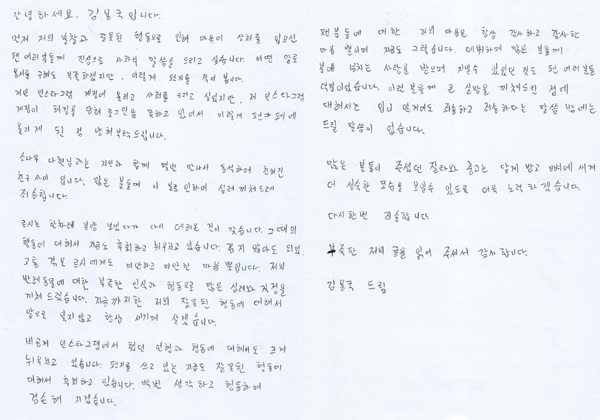 안녕하세요. 김용국입니다.
먼저 저의 불찰과 잘못된 행동으로 인해 마음의 상처를 입으신
팬 여러분들께 진심으로 사과의 말씀을 드리고 싶습니다. 어떤 말로
용서를 구해도 부족하겠지만, 이렇게 편지를 적어 봅니다.
저도 인스타그램 계정에 올리고 사과를 드리고 싶었지만, 저 인스타그램
계정이 해킹을 당해 로그인을 못하고 있어서 이렇게 팬카페에
올리게 된 점 양해부탁드립니다.
소나무 나현님과는 지인과 함께 몇번 만나서 동석하며 친해진
친구 사이 입니다. 많은 분들께 이 일로 인하여 심려 끼쳐드려
죄송합니다.
르시는 한차례 분양 보냈다가 다시 데려온 것이 맞습니다. 그때의
행동에 대해서 지금도 후회하고 뉘우치고 있습니다. 겪지 않아도 되었
고통 겪은 르시에게도 미안하고 미안한 마음 뿐입니다. 저의
반려동물에 대한 부족한 인식과 행동으로 많은 심려와 걱정을
끼쳐 드렸습니다. 지금까지한 저의 잘못된 행동에 대해서
앞으로 잊지않고 항상 새기며 살겠습니다.
비공개 인스타그램에서 했던 언행과 행동에 대해서도 크게
뉘우치고 있습니다. 편지를 쓰고 있는 지금도 잘못된 행동에
대해서 후회하고 있습니다. 백번 생각하고 행동하며
겸손해 지겠습니다.
팬분들에 대한 저의 마음은 항상 감사하고 감사한
마음 뿐이며 지금도 그렇습니다. 데뷔하며 많은 분들께
분에 넘치는 사랑을 받으며 지낼수 있었던 것도 팬 여러분들
덕분이었습니다. 이런분들께 큰 실망을 끼쳐드린 점에
대해서는 입이 열개여도 죄송하고 죄송하다는 말씀 밖에는
드릴 말씀이 없습니다.
많은 분들이 주셨던 질타와 충고는 달게 받고 뼈에 새겨
더 성숙한 모습을 보일수 있도록 더욱 노력 하겠습니다.
다시한번 죄송합니다
부족한 저의 글을 읽어 주셔서 감사합니다.
김용국 드림